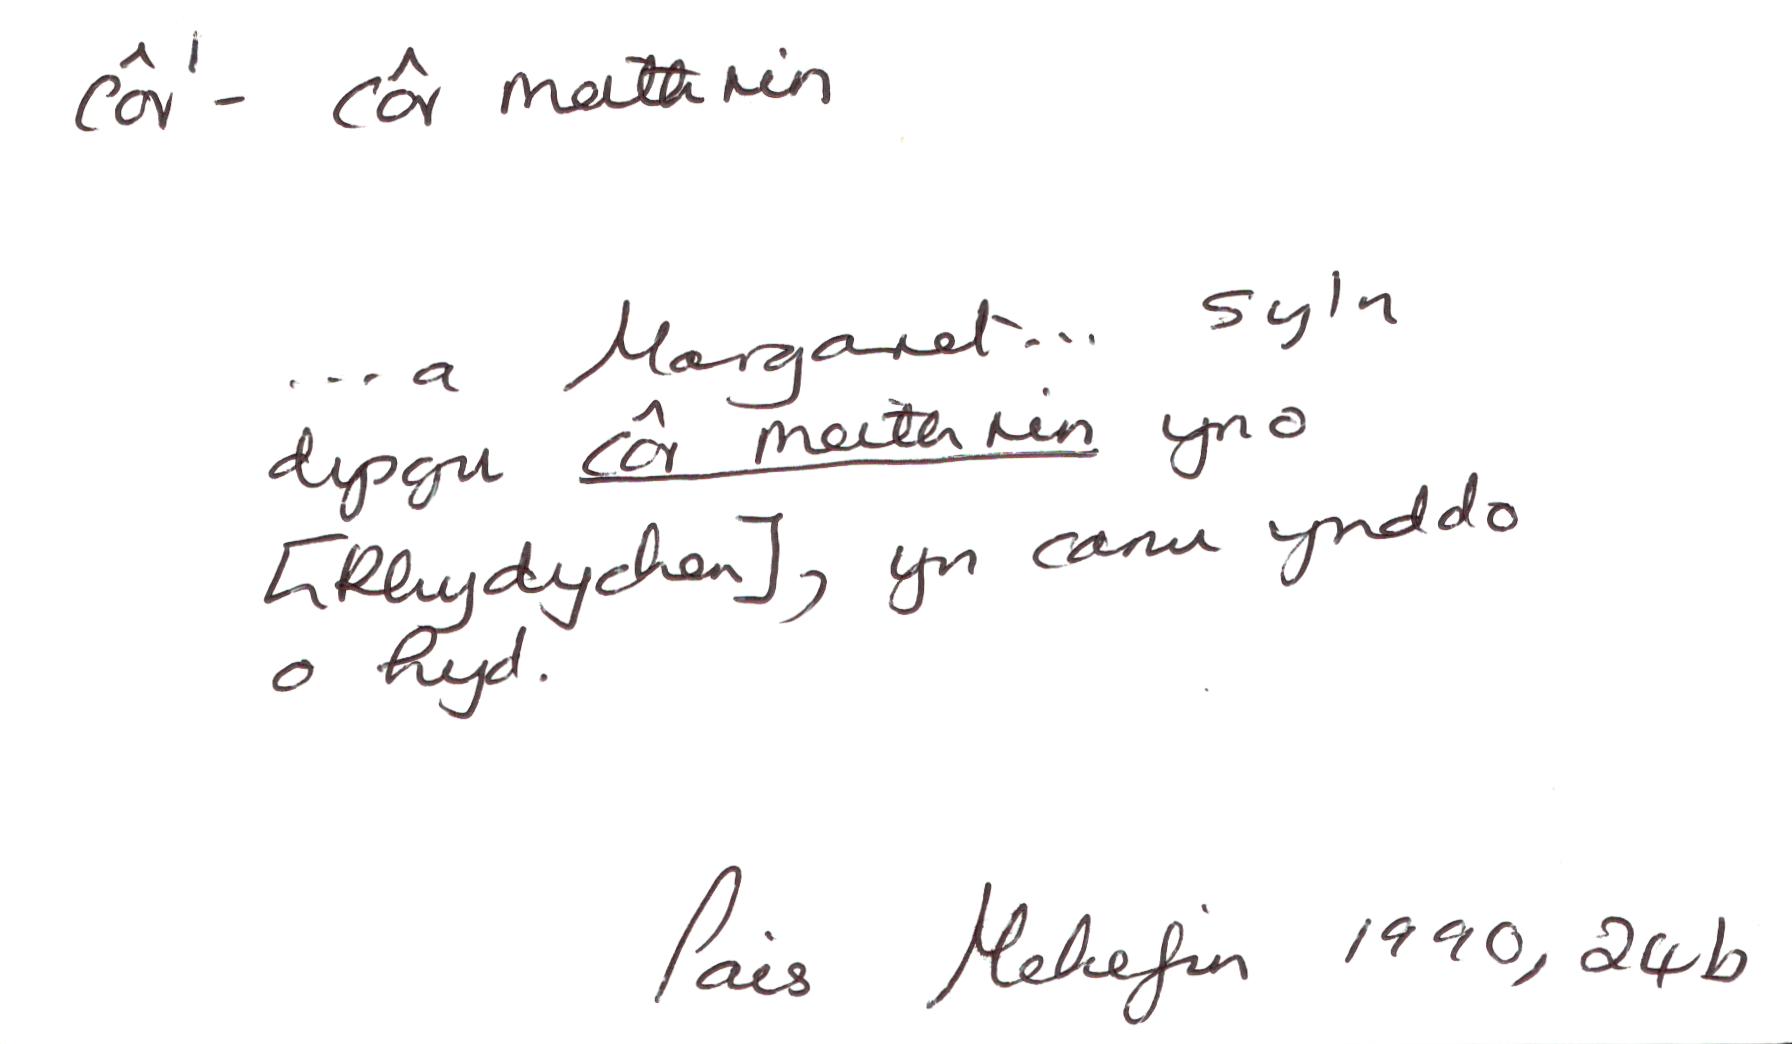 côr¹ - côr meithrin
...a Margaret... sy'n
dysgu côr meithrin yno
[Rhydychen], yn canu ynddo
o hyd.
Pais Mehefin 1990, 24b